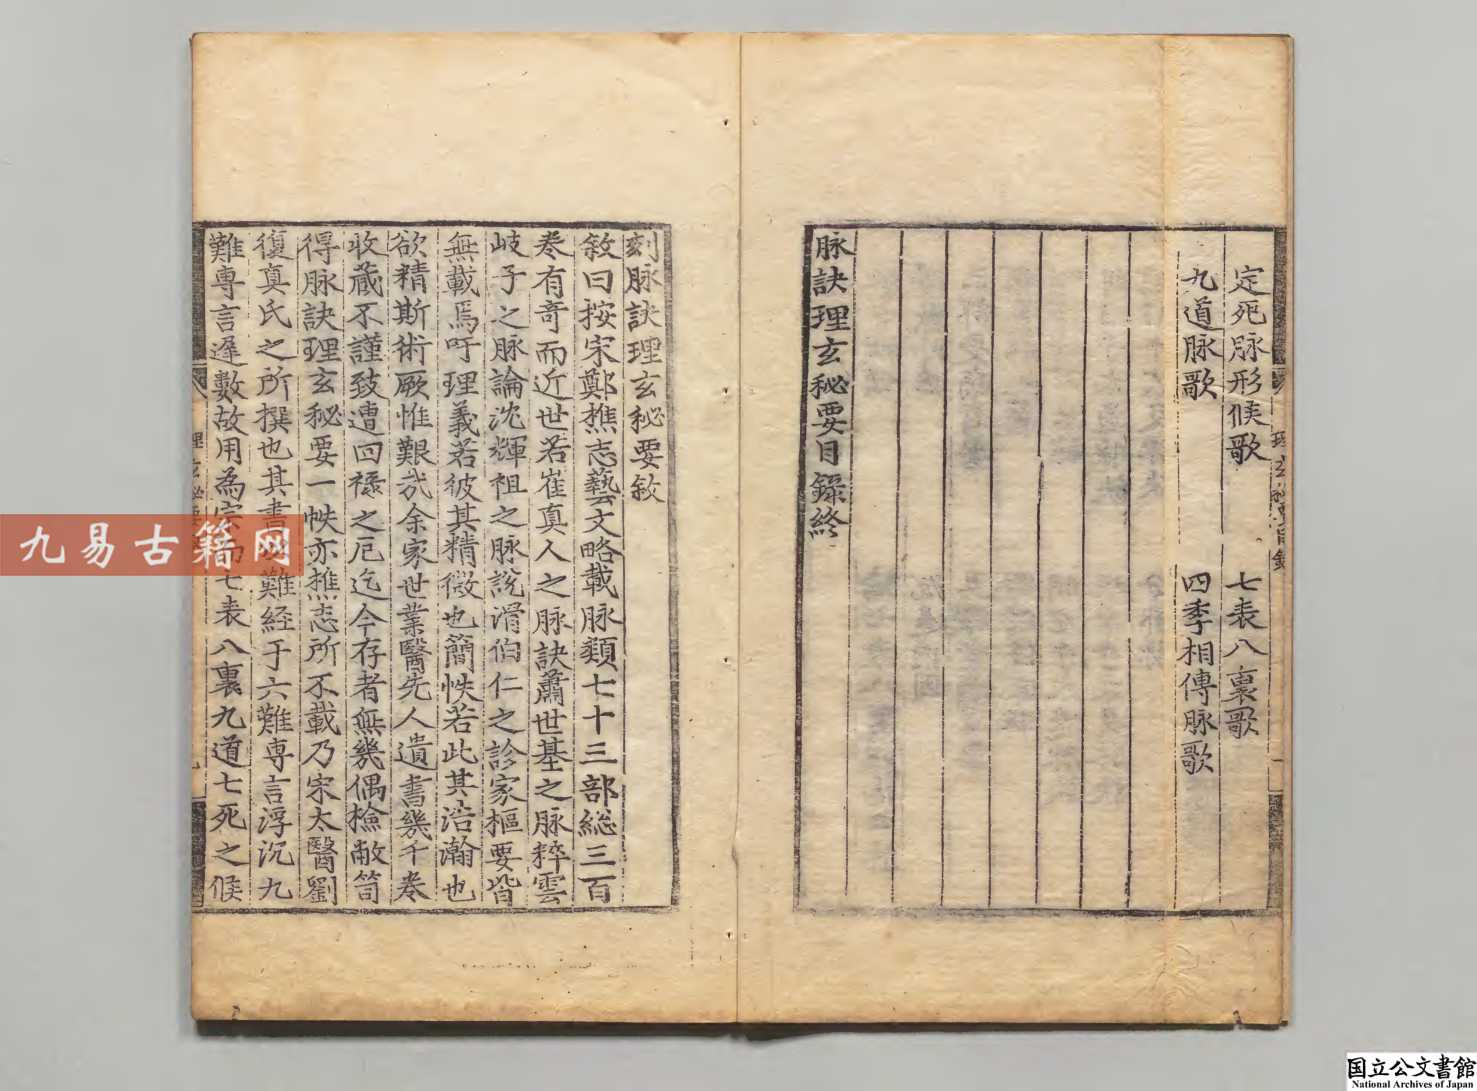 定死脉形候歌　七表八裏歌
九道脉歌　四季相傳脉歌
脉訣理玄秘要目錄終
刻脉訣理玄秘要敘
敘曰按宋鄭樵志藝文略載脉類七十三部総三百
巻有奇而近世若崔真人之脉訣蕭世基之脉粹雲
岐子之脉論沈輝祖之脉說滑伯仁之診家樞要皆
無載焉吁理義若彼其精微也簡帙若此其浩瀚也
欲精斯術厥惟艱哉余家世業醫先人遺書幾千巻
收藏不謹致遭回祿之厄迄今存者無幾偶檢敝笥
得脉訣理玄秘要一帙亦樵志所不載乃宋太醫劉
復真氏之所撰也其書難経于六難専言浮沉九
難専言遲數故用為宗而七表八裏九道七死之候
九易古籍网
国立公文書館
National Archives of Japan